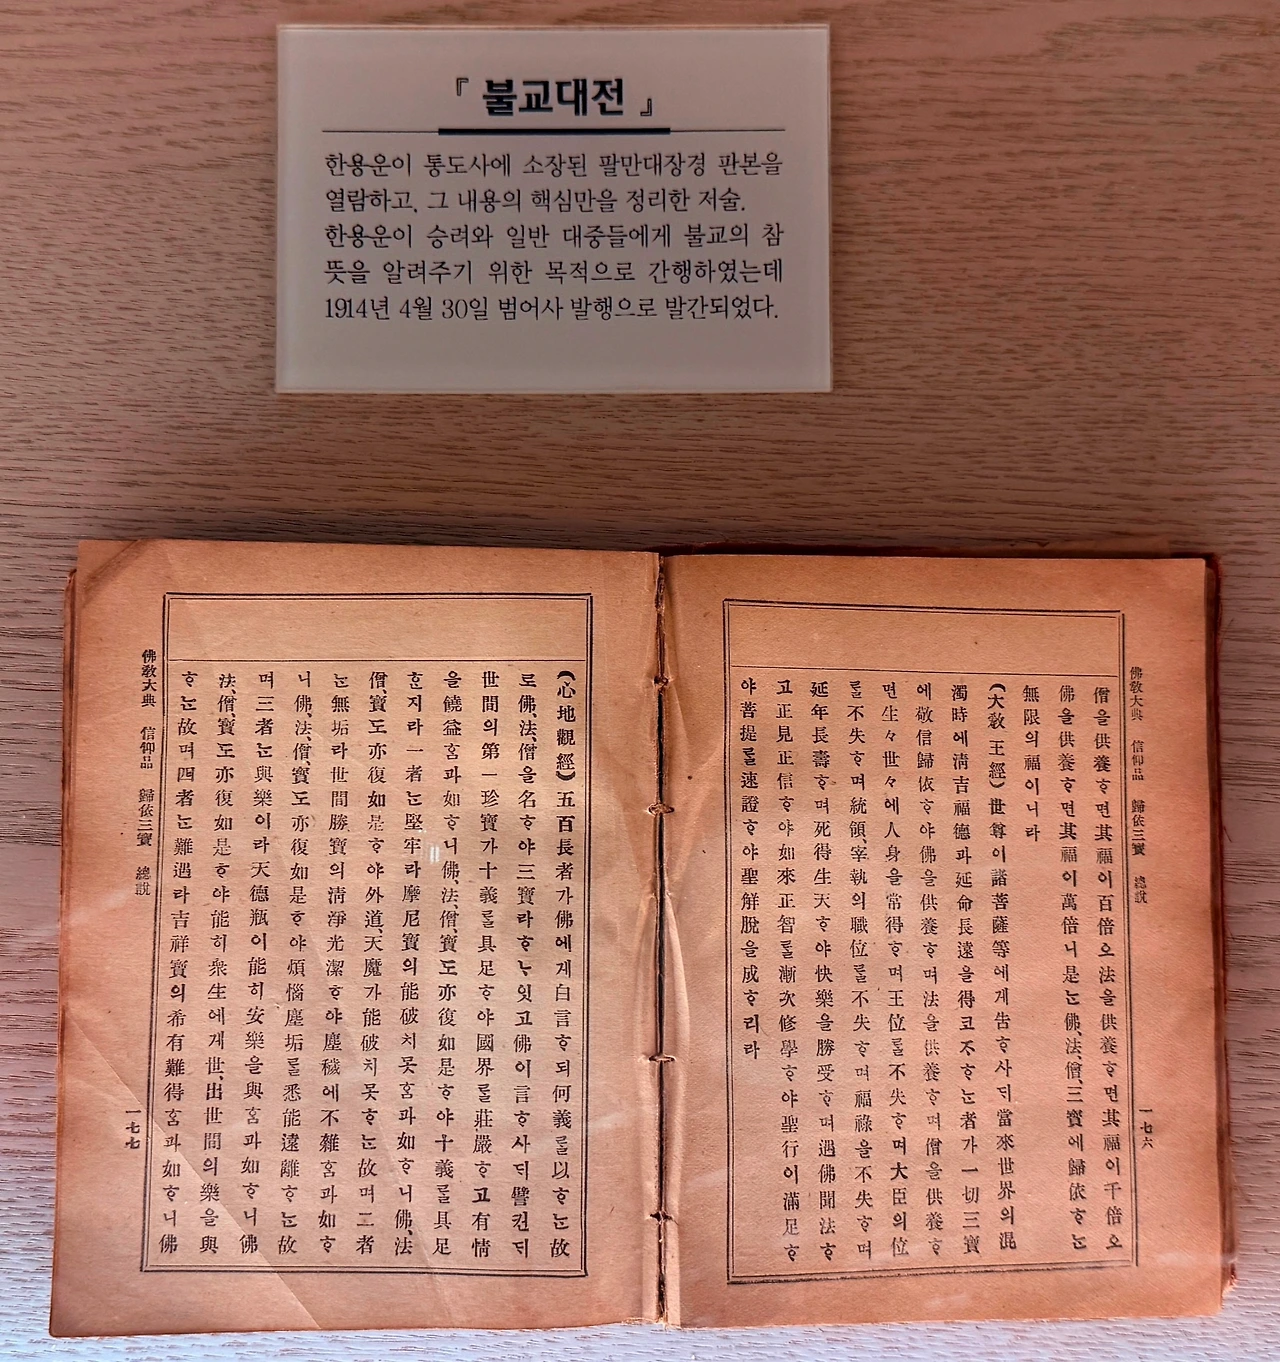 『 불교대전 』
한용운이 통도사에 소장된 팔만대장경 판본을
열람하고, 그 내용의 핵심만을 정리한 저술.
한용운이 승려와 일반 대중들에게 불교의 참
뜻을 알려주기 위한 목적으로 간행하였는데
1914년 4월 30일 범어사 발행으로 발간되었다.
佛敎大典 信仰品 歸依三寶 總說
一七六
僧을供養ᄒᆞ면其福이百倍오法을供養ᄒᆞ면其福이千倍오
佛을供養ᄒᆞ면其福이萬倍니是ᄂᆞᆫ佛、法、僧、三寶에歸依ᄒᆞᄂᆞᆫ
無限의福이니라
(大敎王經)世尊이諸菩薩等에게告ᄒᆞ사ᄃᆡ當來世界의混
濁時에淸吉福德과延命長遠을得코ᄌᆞᄒᆞᄂᆞᆫ者가一切三寶
에敬信歸依ᄒᆞ야佛을供養ᄒᆞ며法을供養ᄒᆞ며僧을供養ᄒᆞ
면生々世々에人身을常得ᄒᆞ며王位ᄅᆞᆯ不失ᄒᆞ며大臣의位
ᄅᆞᆯ不失ᄒᆞ며統領宰執의職位ᄅᆞᆯ不失ᄒᆞ며福祿을不失ᄒᆞ며
延年長壽ᄒᆞ며死得生天ᄒᆞ야快樂을勝受ᄒᆞ며遇佛聞法ᄒᆞ
고正見正信ᄒᆞ야如來正智ᄅᆞᆯ漸次修學ᄒᆞ야聖行이滿足ᄒᆞ
야菩提ᄅᆞᆯ速證ᄒᆞ야聖解脫을成ᄒᆞ리라
(心地觀經)五百長者가佛에게白言ᄒᆞ되何義ᄅᆞᆯ以ᄒᆞᄂᆞᆫ故
로佛、法、僧을名ᄒᆞ야三寶라ᄒᆞᄂᆞ잇고佛이言ᄒᆞ사ᄃᆡ譬컨ᄃᆡ
世間의第一珍寶가十義ᄅᆞᆯ具足ᄒᆞ야國界ᄅᆞᆯ莊嚴ᄒᆞ고有情
을饒益홈과如ᄒᆞ니佛、法、僧、寶도亦復如是ᄒᆞ야十義ᄅᆞᆯ具足
ᄒᆞᆫ지라一者ᄂᆞᆫ堅牢라摩尼寶의能破치못홈과如ᄒᆞ니佛、法
僧、寶도亦復如是ᄒᆞ야外道、天魔가能破치못ᄒᆞᄂᆞᆫ故며二者
ᄂᆞᆫ無垢라世間勝寶의淸淨光潔ᄒᆞ야塵穢에不雜홈과如ᄒᆞ
니佛、法、僧、寶도亦復如是ᄒᆞ야煩惱塵垢ᄅᆞᆯ悉能遠離ᄒᆞᄂᆞᆫ故
며三者ᄂᆞᆫ與樂이라天德瓶이能히安樂을與홈과如ᄒᆞ니佛
法、僧、寶도亦復如是ᄒᆞ야能히衆生에게世、出世間의樂을與
ᄒᆞᄂᆞᆫ故며四者ᄂᆞᆫ難遇라吉祥寶의希有難得홈과如ᄒᆞ니佛
佛敎大典 信仰品 歸依三寶 總說
一七七